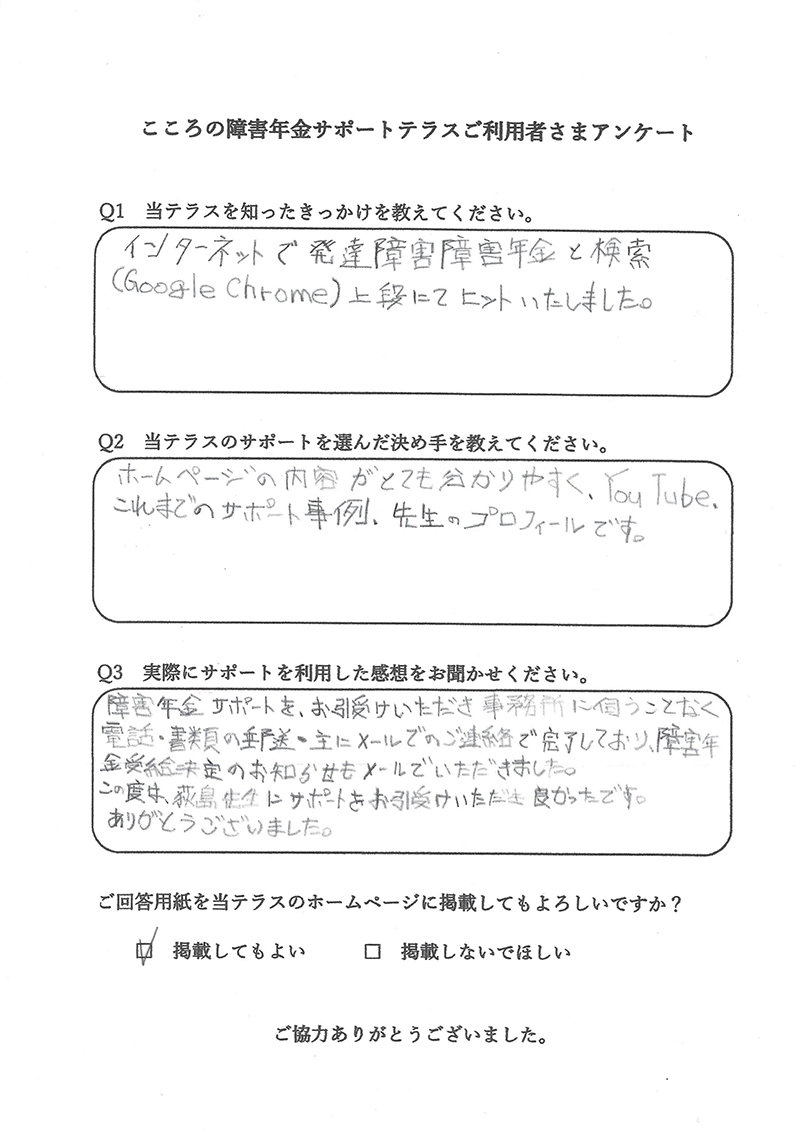 こころの障害年金サポートテラスご利用者さまアンケート
Q1　当テラスを知ったきっかけを教えてください。
インターネットで発達障害障害年金と検索
(Google Chrome)上段にてヒットいたしました。
Q2　当テラスのサポートを選んだ決め手を教えてください。
ホームページの内容がとても分かりやすく、YouTube、
これまでのサポート事例、先生のプロフィールです。
Q3　実際にサポートを利用した感想をお聞かせください。
障害年金サポートを、お引受けいただき事務所に伺うことなく
電話・書類の郵送・主にメールでのご連絡で完了しており、障害年
金受給決定のお知らせもメールでいただきました。
この度は、荻島先生にサポートをお引受けいただき良かったです。
ありがとうございました。
ご回答用紙を当テラスのホームページに掲載してもよろしいですか？
☑ 掲載してもよい　　□ 掲載しないでほしい
ご協力ありがとうございました。